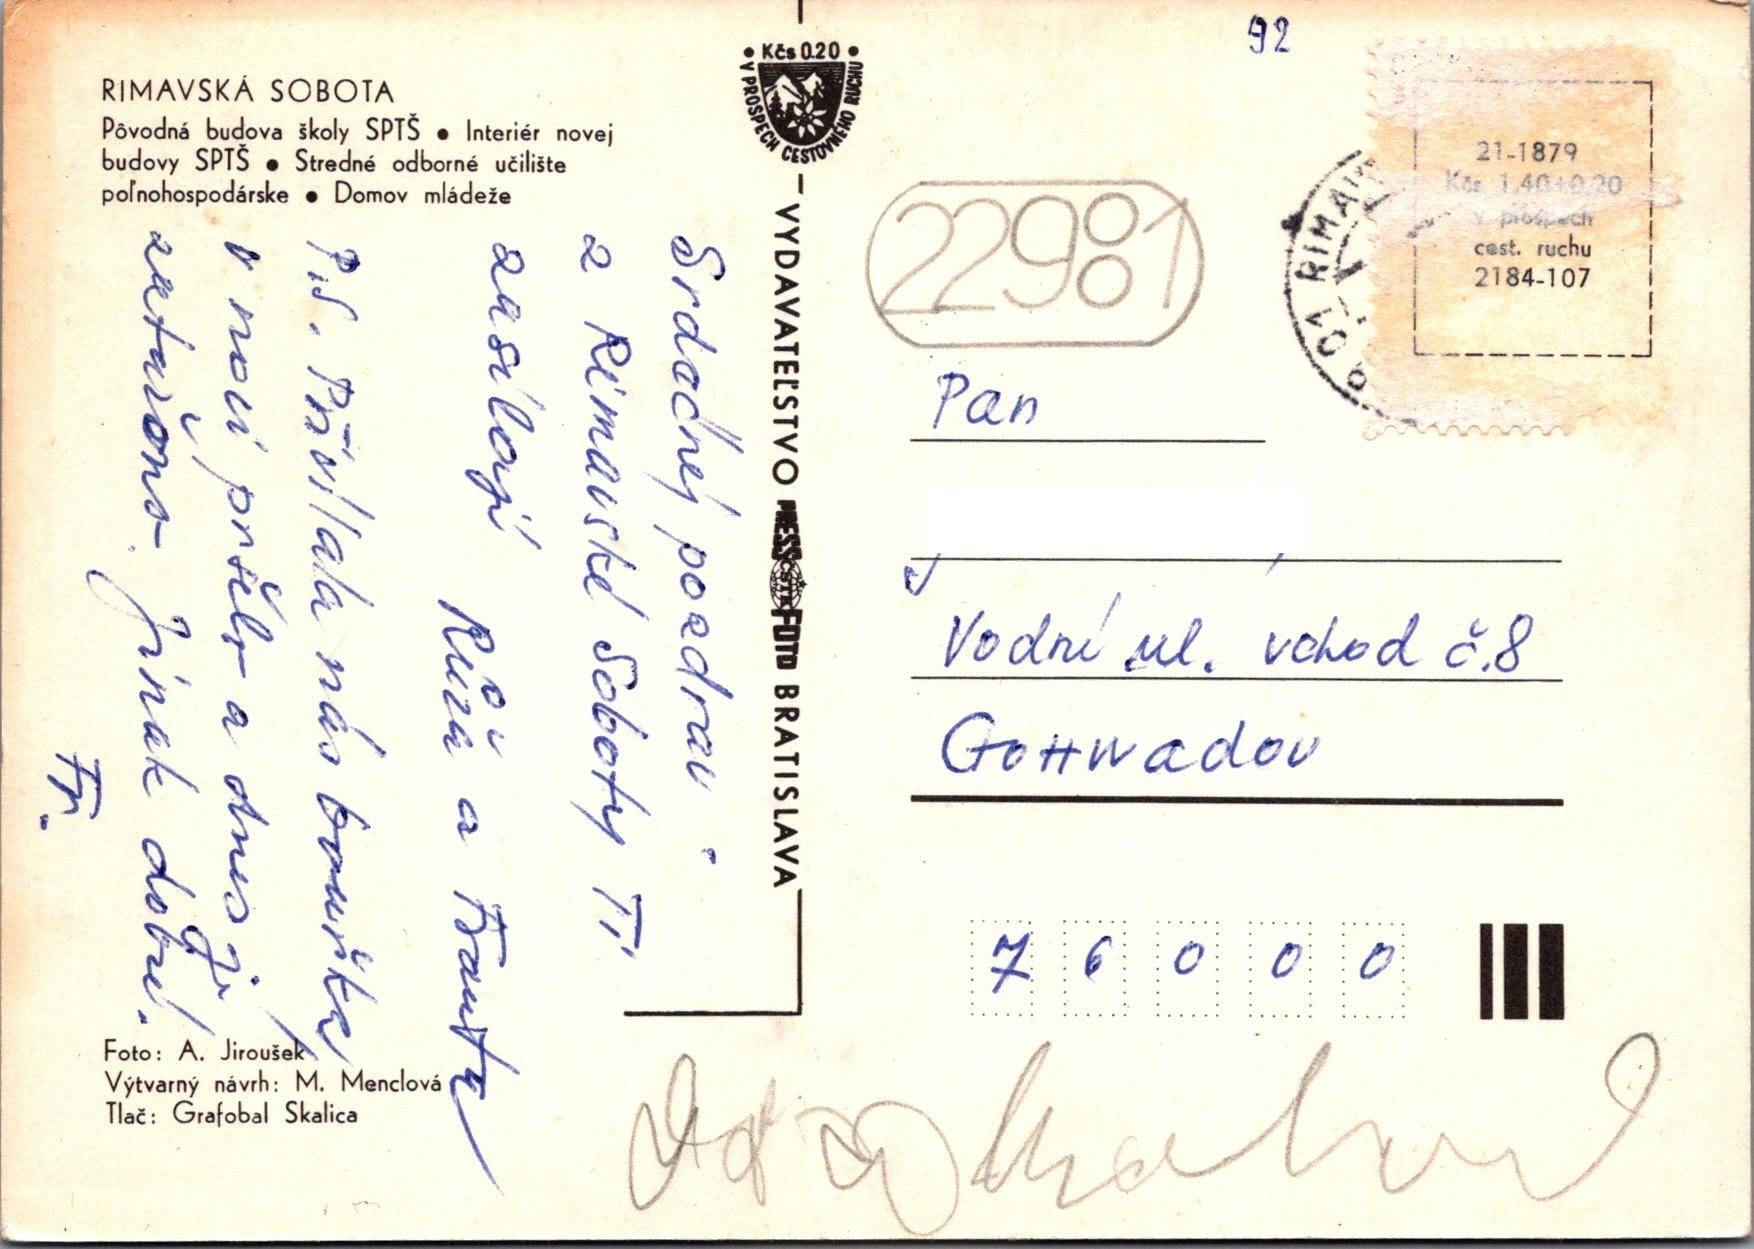 RIMAVSKÁ SOBOTA
Pôvodná budova školy SPTŠ • Interiér novej
budovy SPTŠ • Stredné odborné učilište
poľnohospodárske • Domov mládeže
Srdečný pozdrav
z Rimavské Soboty Ti
zasílají
Růža a Franta
P.S. Přivítala nás bouřka
v noci pršelo a dnes je
zataženo. Jinak dobré.
Fr.
Foto: A. Jiroušek
Výtvarný návrh: M. Menclová
Tlač: Grafobal Skalica
• Kčs 0.20 •
V PROSPECH CESTOVNÉHO RUCHU
VYDAVATEĽSTVO PRESSFOTO BRATISLAVA
ČSTK
92
22981
01 RIMAV
21-1879
Kčs 1,40+0,20
v prospech
cest. ruchu
2184-107
Pan
Vodní ul. vchod č.8
Gottwadov
76000